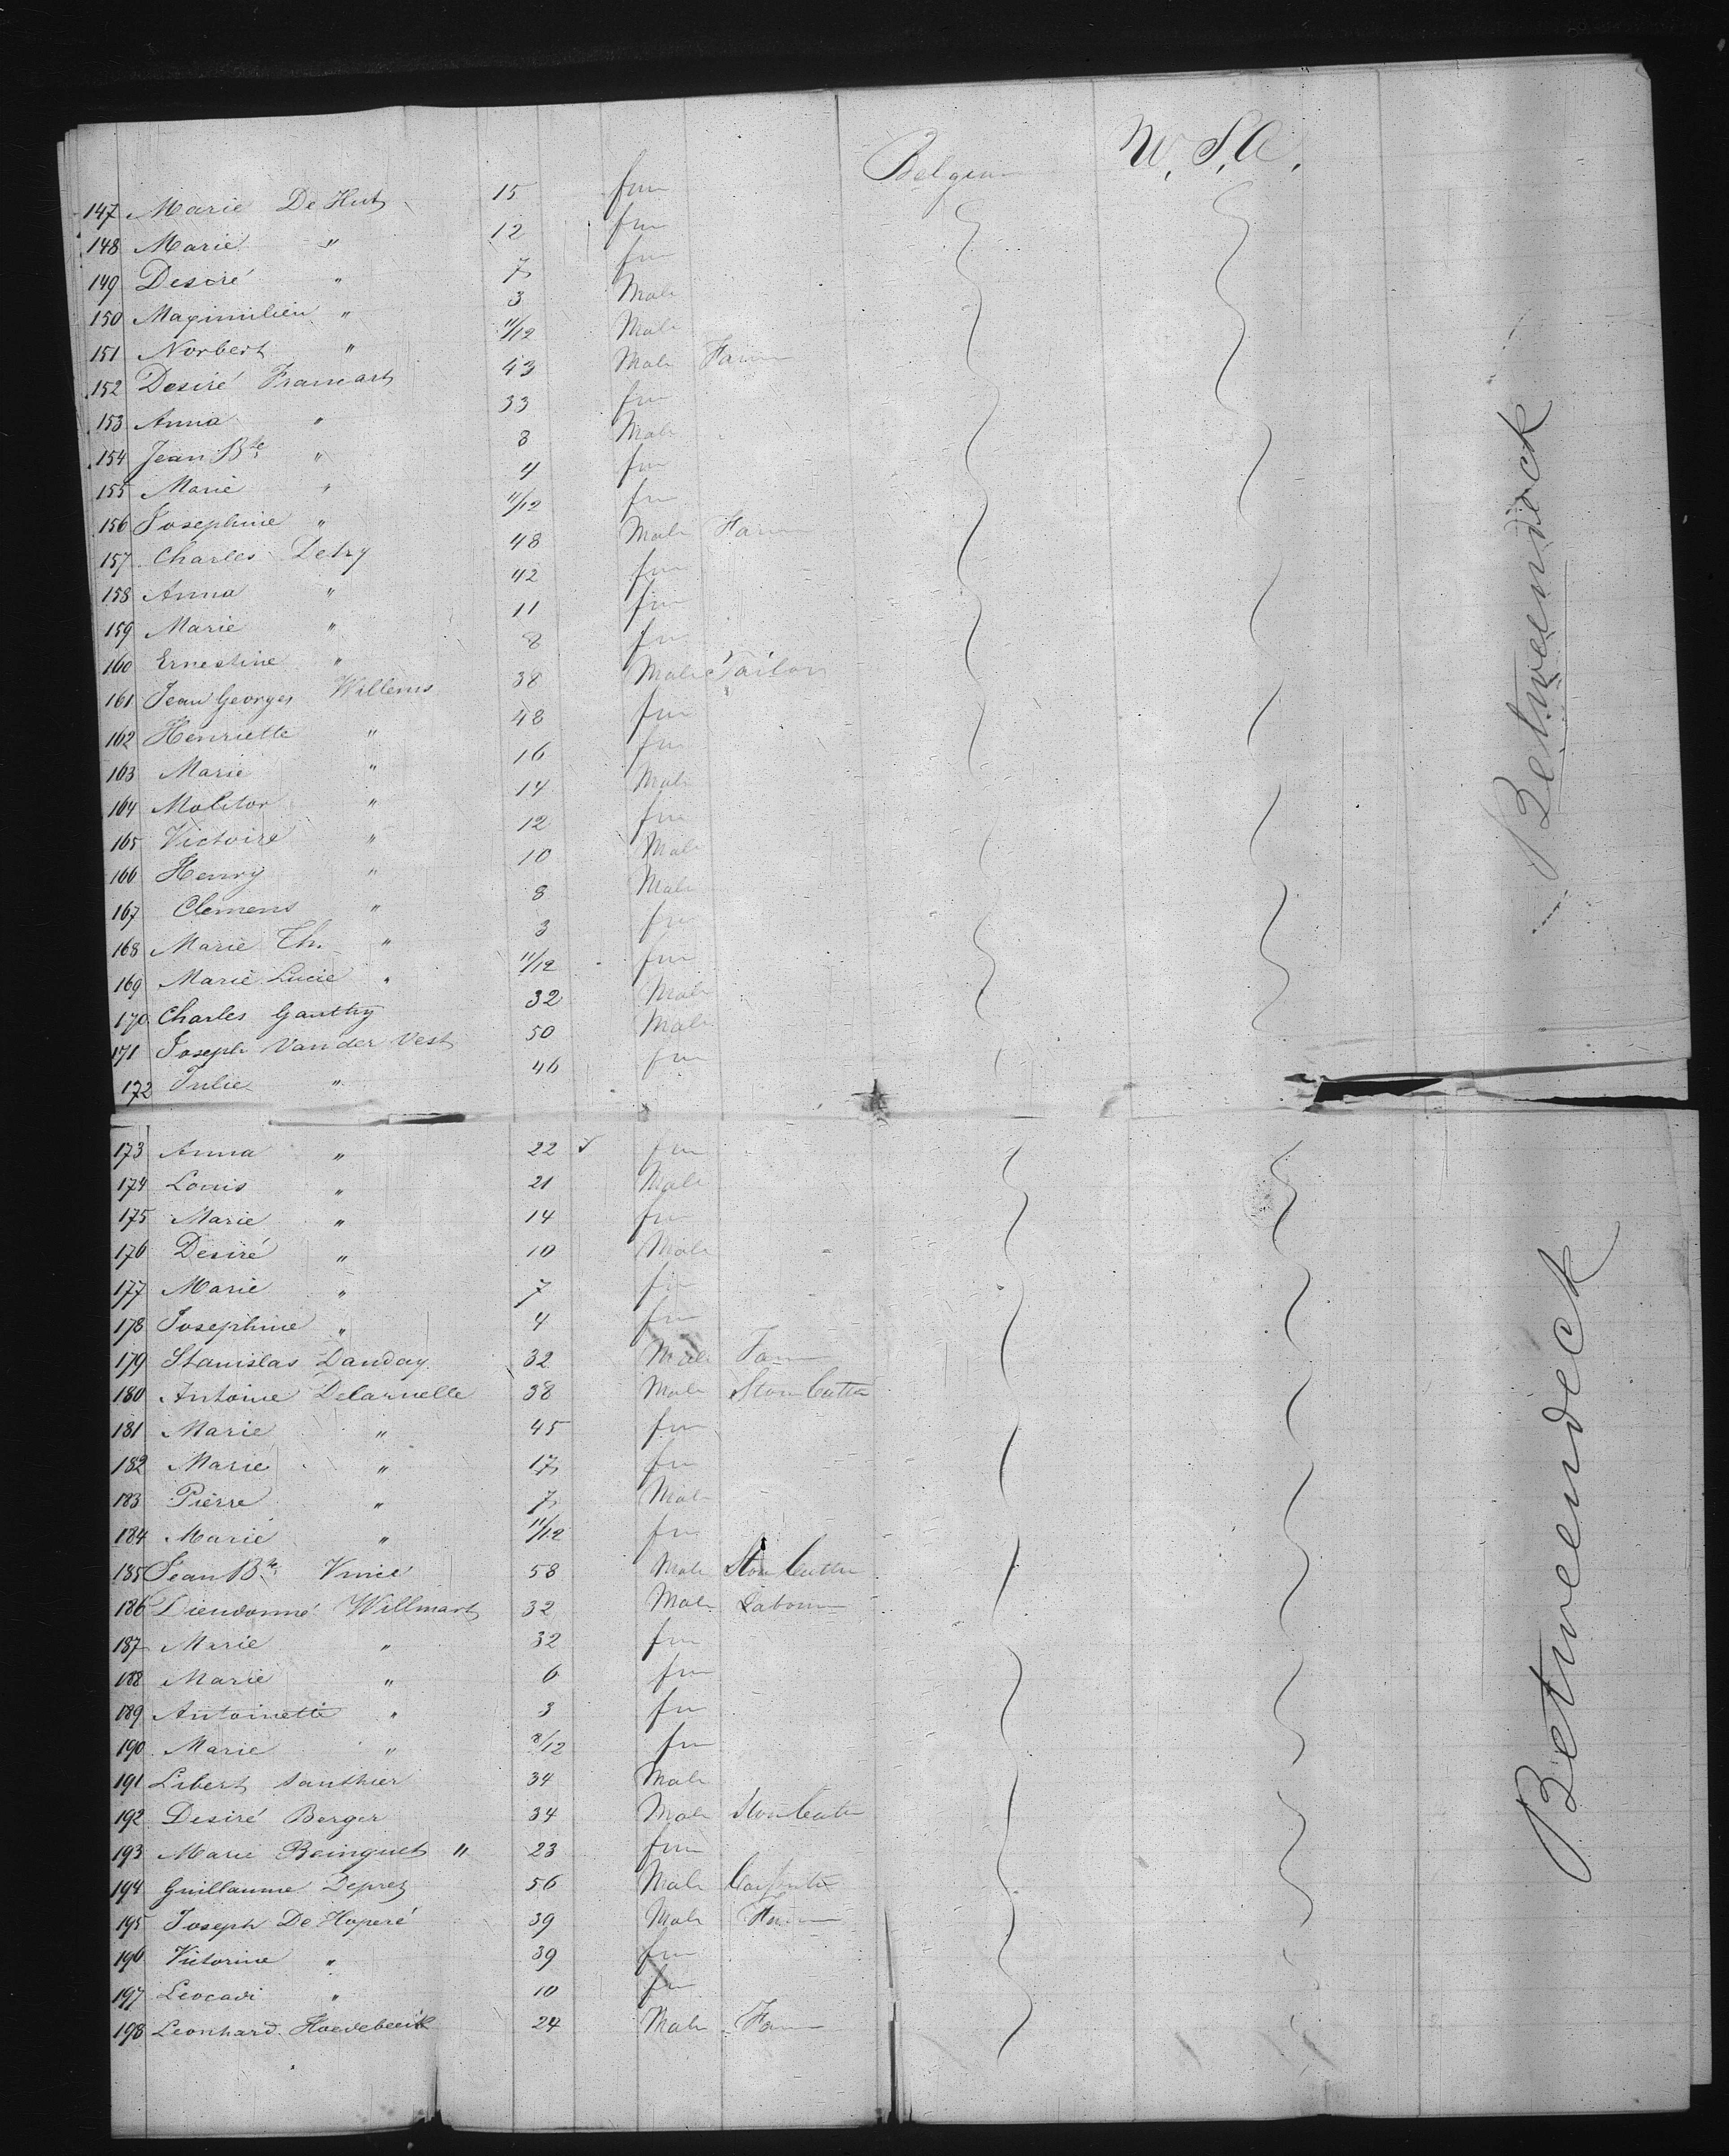 Belgium U.S.A.
147 Marie De Hut 15 fm
148 Marie " 12 fm
149 Desiré " 7 fm
150 Maximilien " 3 Male
151 Norbert " 11/12 Male
152 Desiré Francart 43 Male Farm
153 Anna " 33 fm
154 Jean Bte " 8 Male
155 Marie " 4 fm
156 Josephine " 11/12 fm
157 Charles Detry 48 Male Farm
158 Anna " 42 fm
159 Marie " 11 fm
160 Ernestine " 8 fm
161 Jean Georges Willems 38 Male Tailor
162 Henriette " 48 fm
163 Marie " 16 fm
164 Molitor " 14 Male
165 Victoire " 12 fm
166 Henry " 10 Male
167 Clemens " 8 Male
168 Marie Th. " 3 fm
169 Marie Lucie " 11/12 fm
170 Charles Gauthy 32 Male
171 Joseph Van der Vest 50 Male
172 Julie " 46 fm
173 Anna " 22 fm
174 Louis " 21 Male
175 Marie " 14 fm
176 Desiré " 10 Male
177 Marie " 7 fm
178 Josephine " 4 fm
179 Stanislas Danday 32 Male Farm
180 Antoine Delaruelle 38 Male Stone Cutter
181 Marie " 45 fm
182 Marie " 17 fm
183 Pierre " 7 Male
184 Marie " 11/12 fm
185 Jean Bte 58 Male Stone Cutter
186 Dieudonné Willmart 32 Male Labourer
187 Marie " 32 fm
188 Marie " 6 fm
189 Antoinette " 3 fm
190 Marie " 8/12 fm
191 Libert Sauthier 34 Male
192 Desiré Berger 34 Male Stone Cutter
193 Marie Beinguet " 23 fm
194 Guillaume Deprez 56 Male Carpenter
195 Joseph De Hoperé 39 Male Farm
196 Victorine " 39 fm
197 Leocadi " 10 fm
198 Leonhard Hoedebeeik 24 Male Farm
Betweendeck
Betweendeck